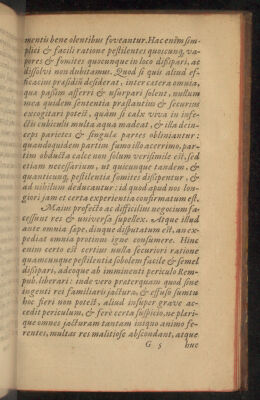 mentis bene olentibus foveantur. Hac enim sim-
plici & facili ratione pestilentes quoscunq, va-
pores & fomites quocunque in loco disipari, ac
dissolvi non dubitamus. Quod si quis aliud ef-
ficacius præsidiū desiderat, inter catera omnia,
qua passim afferri & usurpari solent, nullum
mea quidem sententia præstantius & securius
excogitari potest, quàm si calx viva in infe-
ctis cubiculis multa aqua madeat, & illa dein-
ceps parietes & singula partes obliniantur:
quandoquidem partim fumo illo acerrimo, par-
tim obducta calce non solum verisimile est, sed
etiam necessarium, ut quicunque tandem, &
quanticunq, pestilentia fomites disipentur, &
ad nihilum deducantur: id quod apud nos lon-
giori jam et certa experientia confirmatum est.
Maius profecto ac difficilius negocium fa-
cessunt res & universa supellex. Atque illud
ante omnia sæpe, dinque disputatum est, an ex-
pediat omnia protinus igne consumere. Hinc
enim certo est certius nulla securiori ratione
quamcunque pestilentia sobolem facile & semel
disipari, adeoque ab imminenti periculo Rem-
pub. liberari: inde vero praterquam quod sine
ingenti rei familiaris jactura, & effuso sumtu
hoc fieri non potest, aliud insuper grave ac-
cedit periculum, & ferè certa suspicio, ne pleri-
que omnes jacturam tantam iniquo animo fe-
rentes, multas res malitiose abscondant, atque
G 5 huc